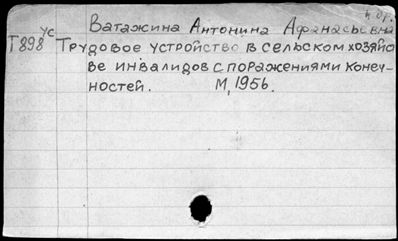 ус
Ватажина Антонина Афанасьевна
Т898 Трудовое устройство в сельском хозяйс
ве инвалидов с поражениями конеч-
ностей. М, 1956.